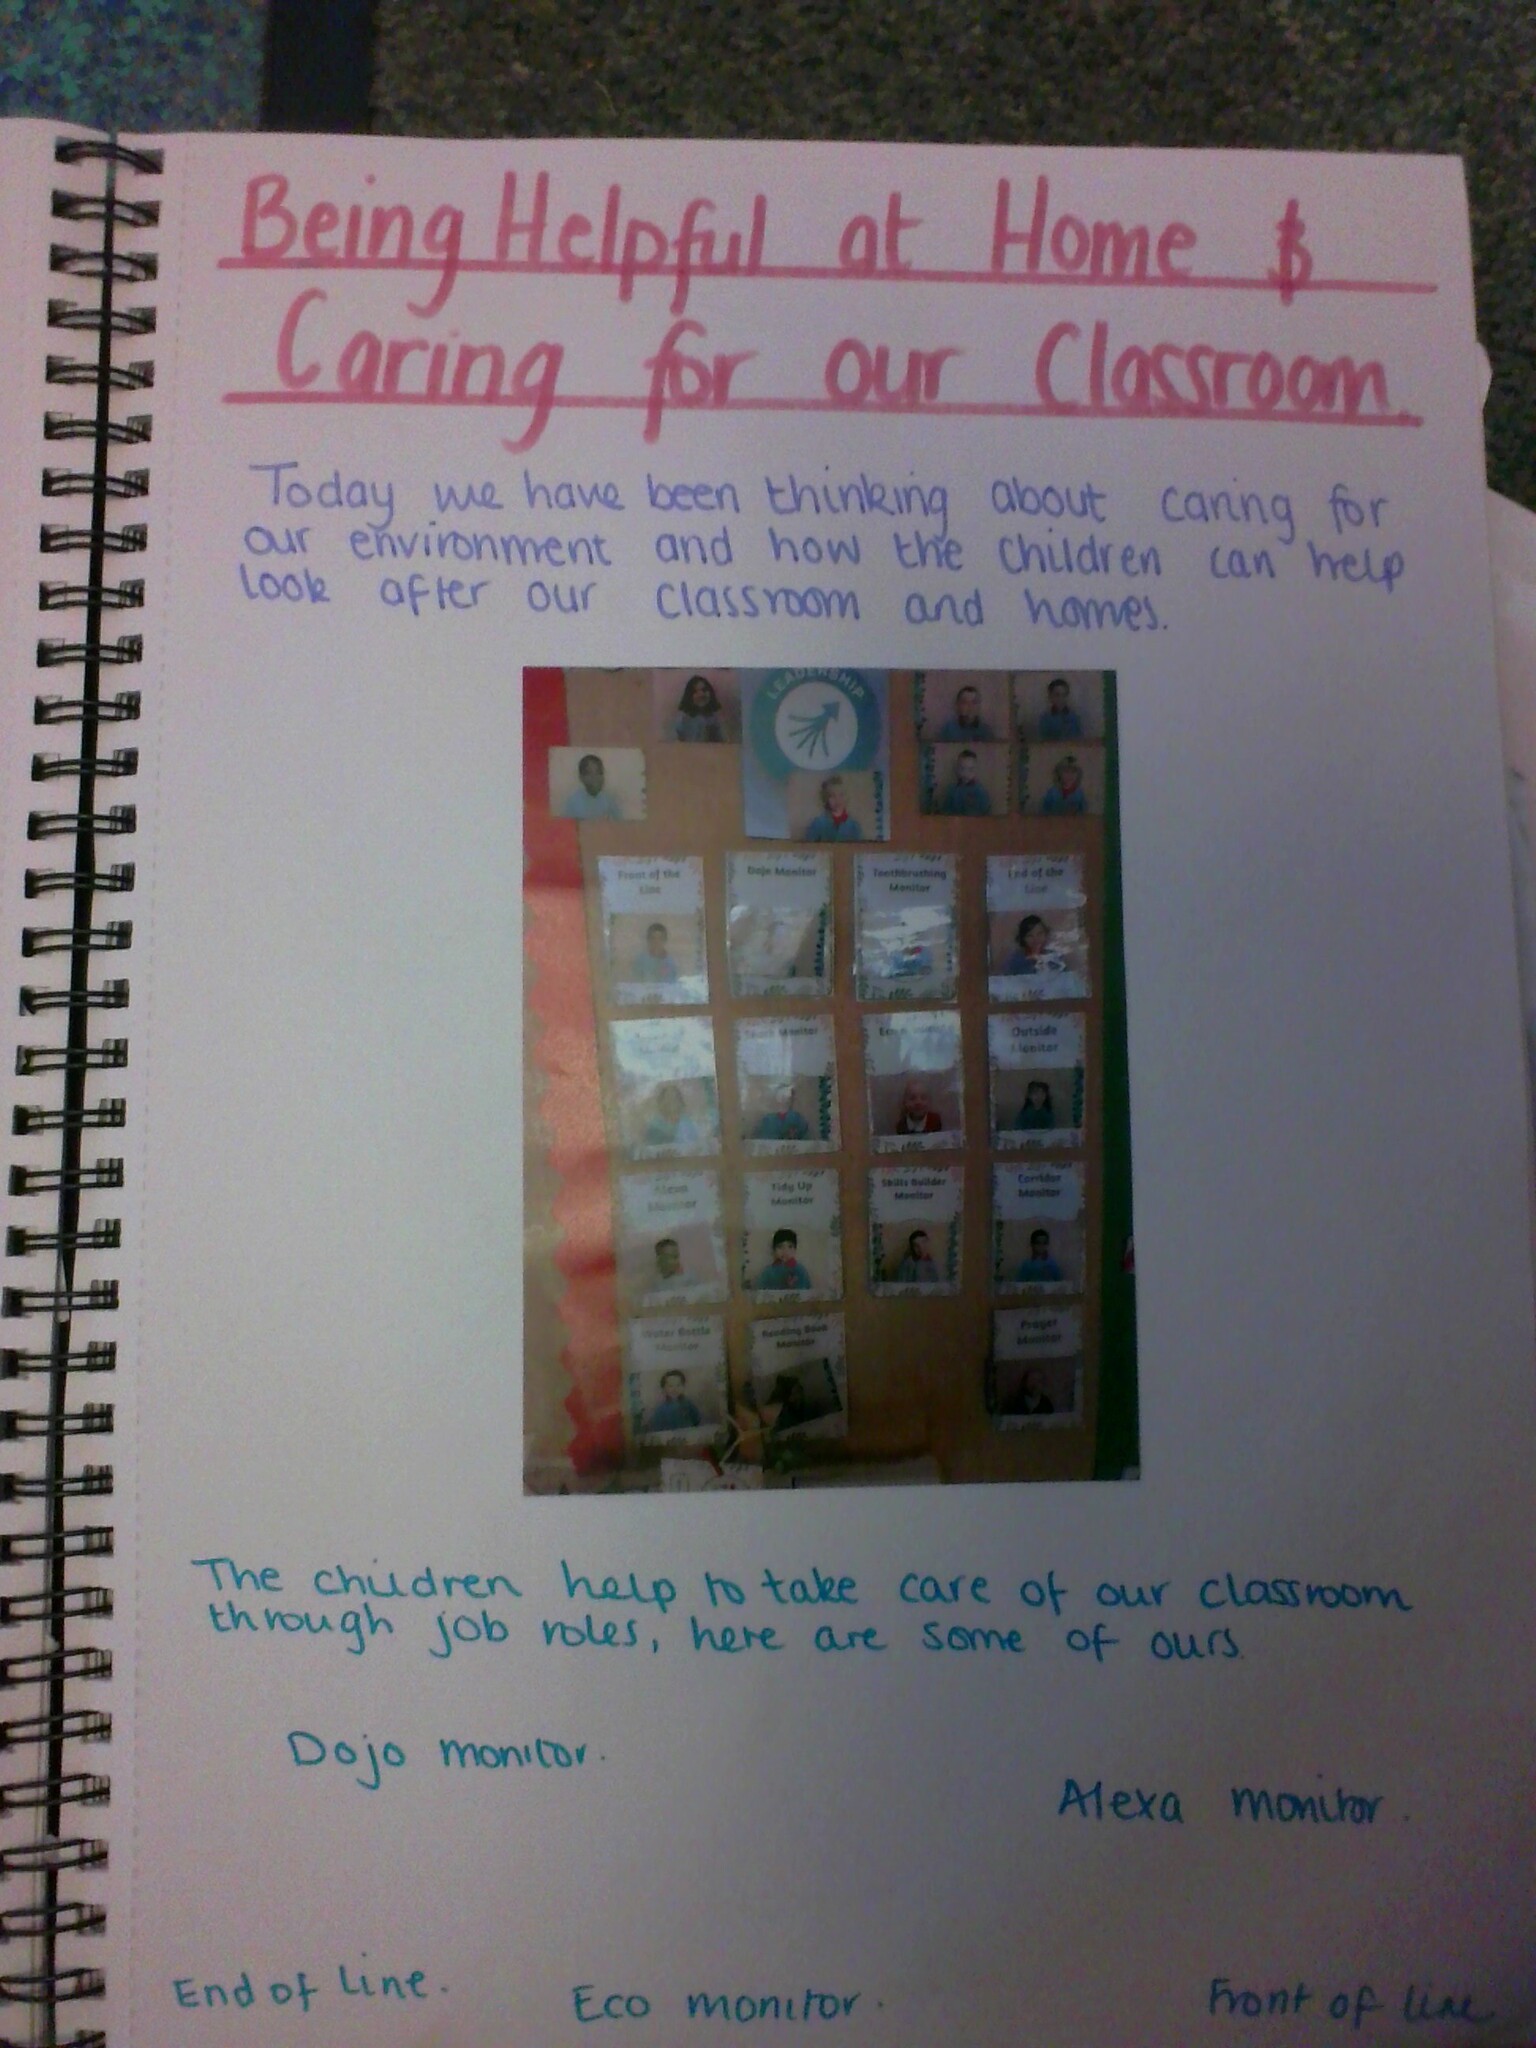 Being Helpful at Home $
Caring for our Classroom.
Today we have been thinking about caring for
our environment and how the children can help
look after our classroom and homes.
LEADERSHIP
Front of the
Line
Dojo Monitor
Toothbrushing
Monitor
End of the
Line
Monitor
Outside
Monitor
Alexa
Monitor
Tidy Up
Monitor
Skills Builder
Monitor
Corridor
Monitor
Water Bottle
Monitor
Reading Book
Monitor
Prayer
Monitor
The children help to take care of our classroom
through job roles, here are some of ours.
Dojo monitor.
Alexa monitor.
End of Line.
Eco monitor.
Front of line